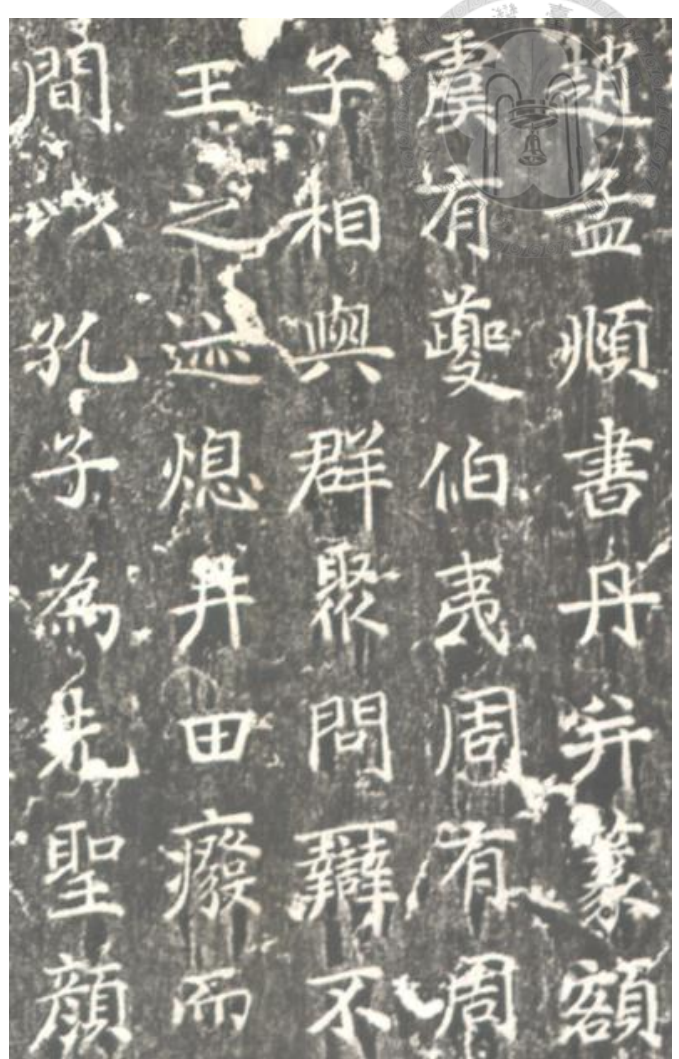 趙孟頫書丹并篆額
虞有夔伯夷周有周
子相與群聚問辯不
王之迹熄井田廢而
間以孔子為先聖顏